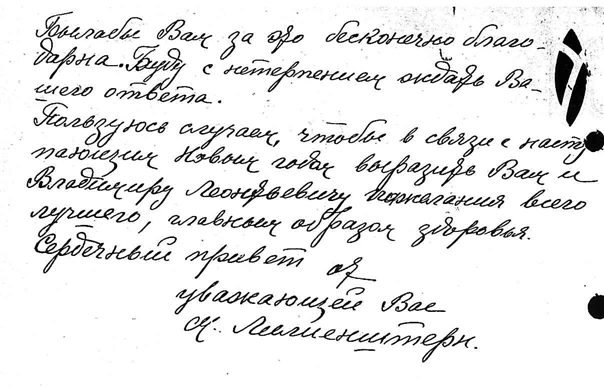 Былабы Вам за это бесконечно благо-
дарна. Буду с нетерпением ожидать Ва-
шего ответа.
Пользуюсь случаем, чтобы в связи с насту
пающим Новым годом выразить Вам и
Владимиру Леонтьевичу пожелания всего
лучшего, главным образом здоровья.
Сердечный привет от
уважающей Вас
К. Лилиенштерн.